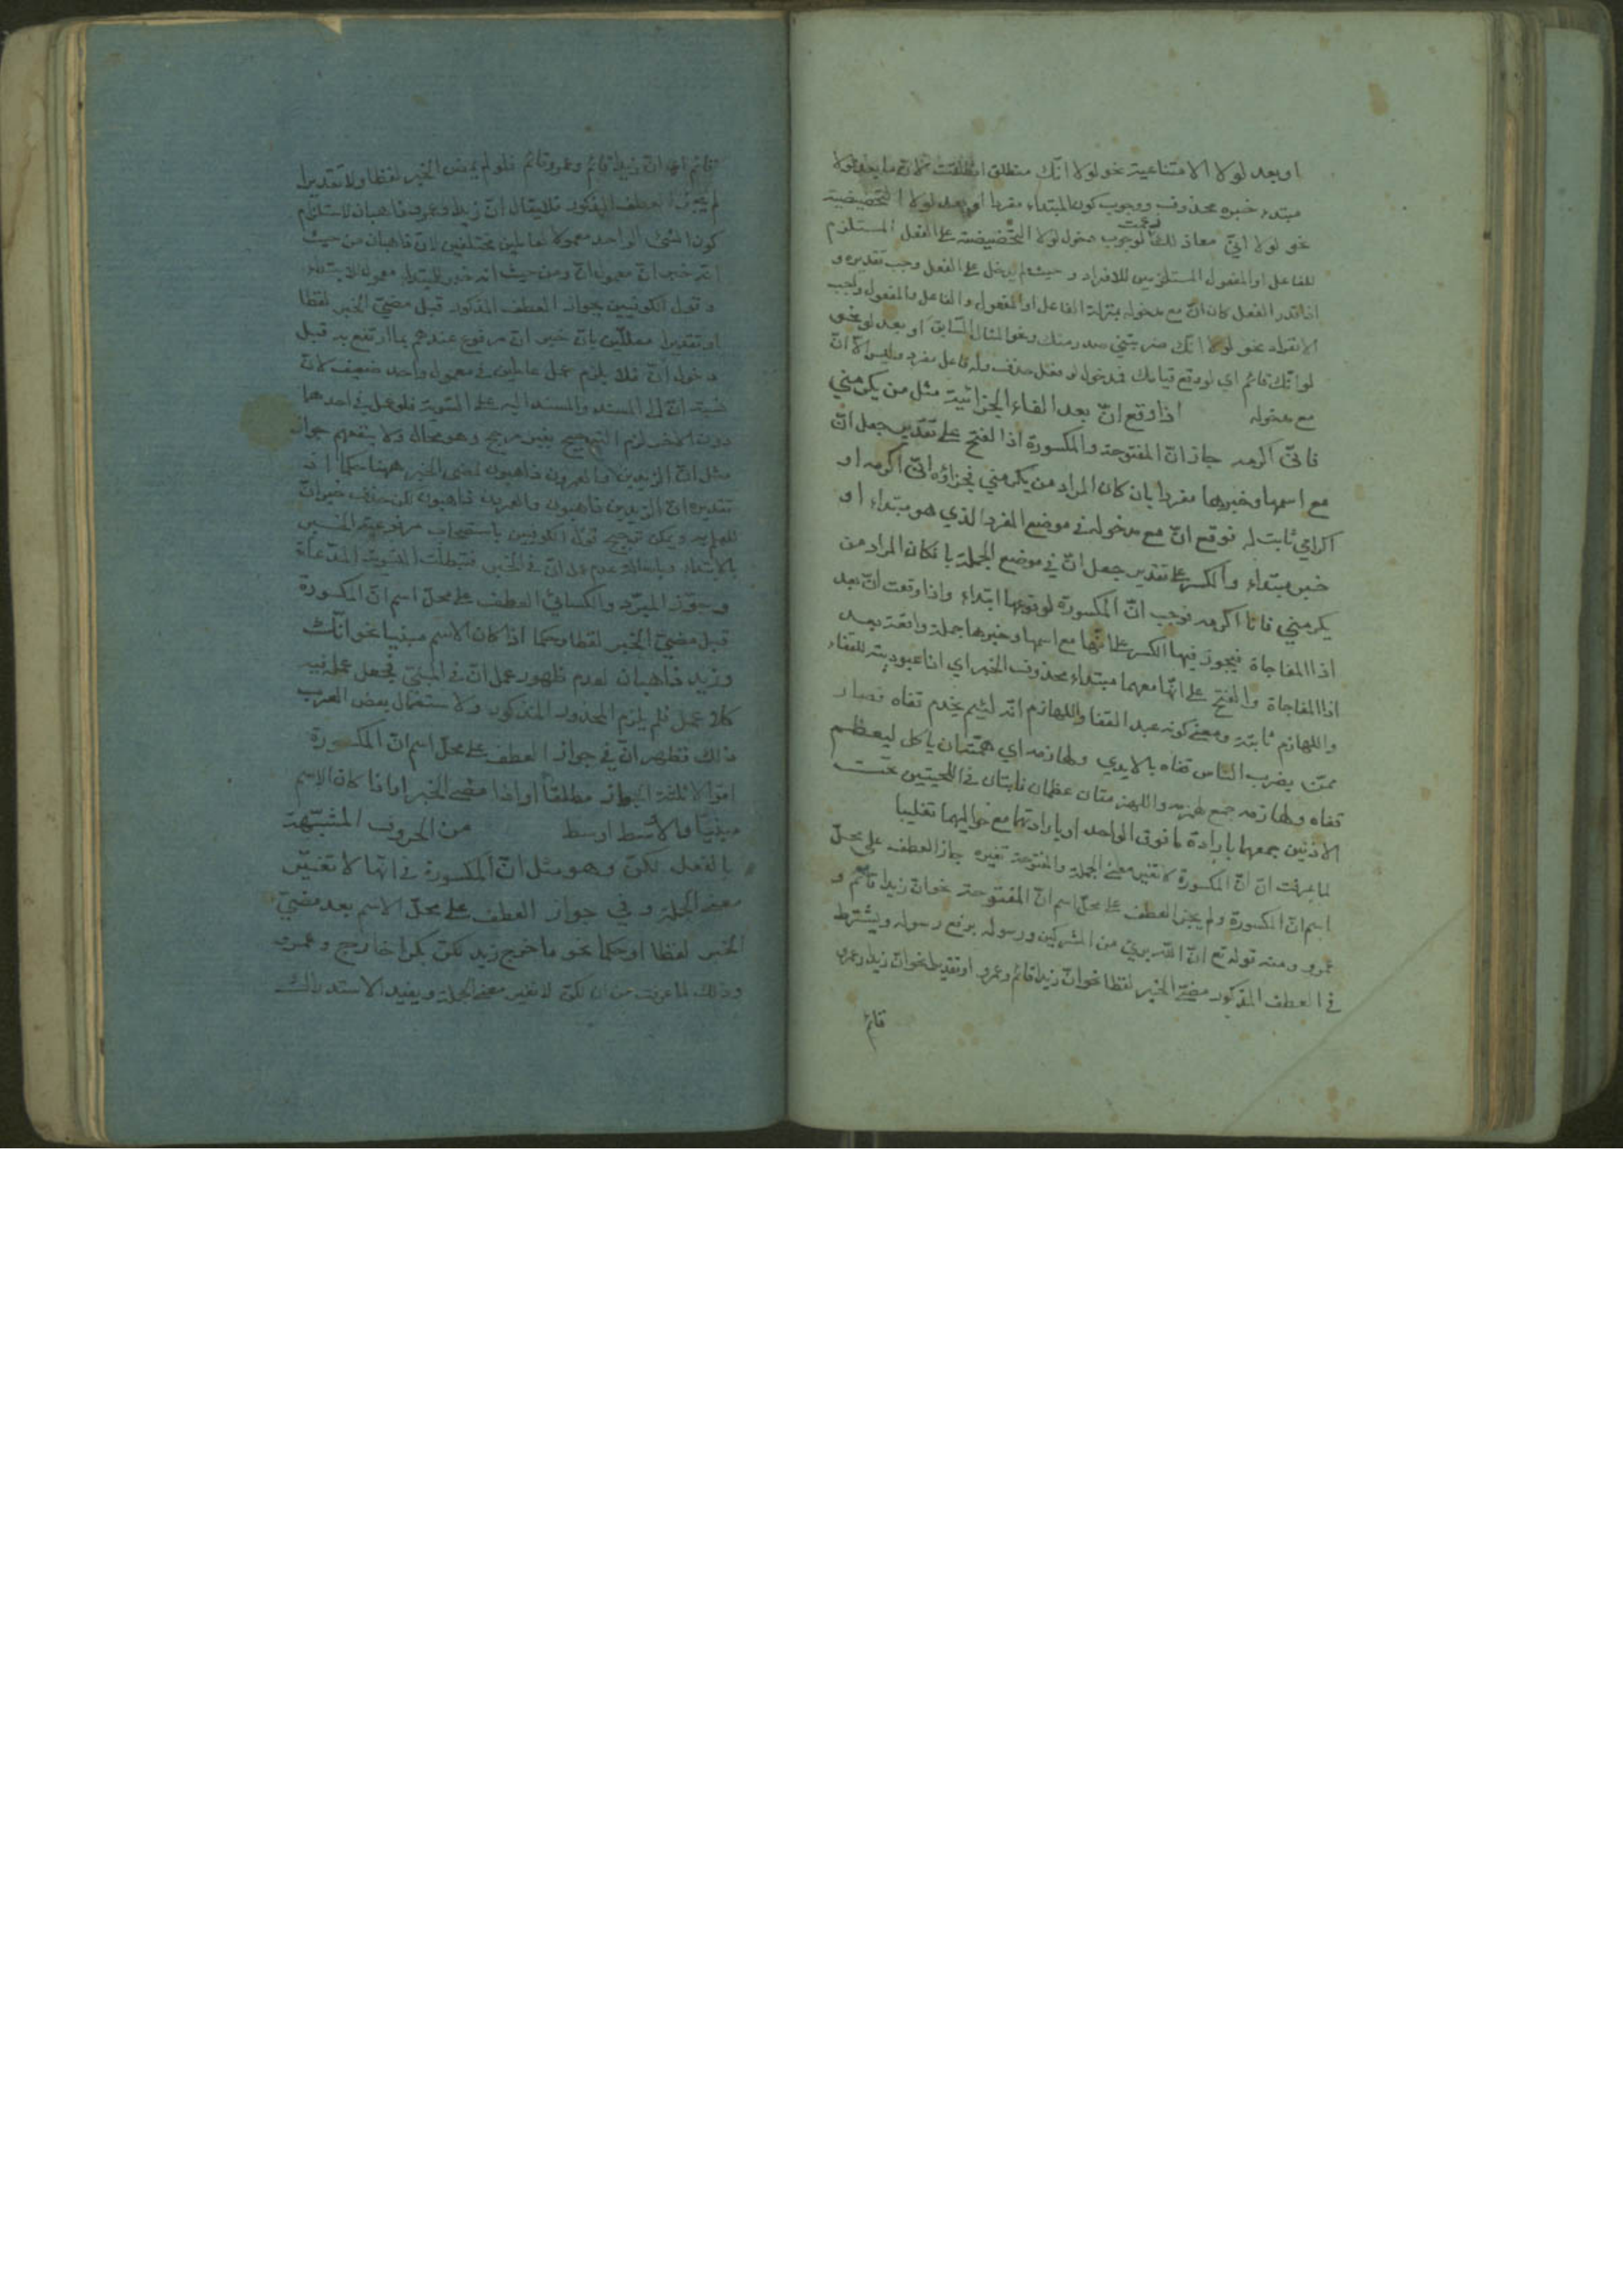 او بعد لولا الامتناعية نحو لولا انّك منطلق انطلقت لانّ ما بعد لولا
مبتداء خبره محذوف ووجوب كون المبتداء مفردا او بعد لولا التحضيضية
نحو لولا انّي معاذ لك زعمت لوجوب دخول لولا التحضيضية على الفعل المستلزم
للفاعل او المفعول المستلزمين للافراد وحيث لم يدخل على الفعل وجب تقديره و
اذا قدر الفعل كان انّ مع مدخوله بمنزلة الفاعل او المفعول والفاعل والمفعول واجب
الانفراد نحو لولا انّك ضربتني صدر منك ونحو المثال السّابق او بعد لو نحو
لو انّك قائم اي لو وقع قيامك فمدخول لو فعل حذف وله فاعل مفرد وليس الّا انّ
مع مدخوله اذا وقع انّ بعد الفاء الجزائية مثل من يكرمني
فانّي اكرمه جاز انّ المفتوحة والمكسورة اذا الفتح على تقدير جعل انّ
مع اسمها وخبرها مفردا بان كان المراد من يكرمني فجزاؤه انّي اكرمه او
اكرامي ثابت له فوقع انّ مع مدخوله في موضع المفرد الذي هو مبتداء او
خبر مبتداء والكسر على تقدير جعل انّ في موضع الجملة بان كان المراد من
يكرمني فانا اكرمه فوجب انّ المكسورة لوقوعها ابتداء واذا وقعت انّ بعد
اذا المفاجاة فيجوز فيها الكسر على انّها مع اسمها وخبرها جملة واقعة بعد
اذا المفاجاة والفتح على انّها معهما مبتداء محذوف الخبر اي اذا عبوديته للقفاء
واللهازم ثابتة ومعنى كونه عبد القفا واللهازم انّه لئيم يخدم قفاه فصار
ممّن يضرب الناس قفاه بالايدي ولهازمه اي همّته ان ياكل ليعظم
قفاه ولهازمه جمع لهزمة واللهزمتان عظمان ناتئان في اللحيتين تحت
الاذنين جمعهما بارادة ما فوق الواحد او بارادتهما مع حواليهما تغليبا
لما عرفت انّ انّ المكسورة لا تغير معنى الجملة والمفتوحة تغيره جاز العطف على محلّ
اسم انّ المكسورة ولم يجز العطف على محلّ اسم انّ المفتوحة نحو انّ زيدا قائم و
عمرو ومنه قوله تع انّ اللّه بريئ من المشركين ورسوله برفع رسوله ويشترط
في العطف المذكور مضيّ الخبر لفظا نحو انّ زيدا قائم وعمرو او تقديرا نحو انّ زيدا وعمرو
قائم
قائم اي انّ زيدا قائم وعمرو قائم فلو لم يمض الخبر لفظا ولا تقديرا
لم يجز العطف المذكور فلا يقال انّ زيدا وعمرو ذاهبان لاستلزام
كون الشئ الواحد معمولا لعاملين مختلفين لانّ ذاهبان من حيث
انّه خبر انّ معمول انّ ومن حيث انّه خبر المبتداء معمول الابتداء
وتقول الكوفيين بجواز العطف المذكور قبل مضيّ الخبر لفظا
او تقديرا معلّلين بانّ خبر انّ مرفوع عندهم بما ارتفع به قبل
دخول انّ فلا يلزم عمل عاملين في معمول واحد ضعيف لانّ
نسبة انّ الى المسند والمسند اليه على السّوية فلو عمل في احدهما
دون الاخر لزم الترجيح بغير مرجح وهو محال ولا ينفعهم جواز
مثل انّ الزيدين والعمرون ذاهبون لمضى الخبر ههنا حكما اذ
تقديره انّ الزيدين ذاهبون والعمرون ذاهبون لكن حذف خبر انّ
للعلم به ويمكن ترجيح قول الكوفيين باستصحاب مرفوعية الخبر
بالابتداء وباصالة عدم عمل انّ في الخبر فتبطلت السّوية المدّعاة
وجوّز المبرّد والكسائي العطف على محلّ اسم انّ المكسورة
قبل مضيّ الخبر لفظا وحكما اذا كان الاسم مبنيا نحو انّك
وزيد ذاهبان لعدم ظهور عمل انّ في المبنيّ فجعل عمله فيه
كلا عمل فلم يلزم المحذور المذكور ولاستعمال بعض العرب
ذلك فظهر انّ في جواز العطف على محلّ اسم انّ المكسورة
اقوالا ثلثة الجواز مطلقا او اذا مضى الخبر او اذا كان الاسم
مبنيّا والاوسط اوسط من الحروف المشبّهة
بالفعل لكنّ وهو مثل انّ المكسورة في انّها لا تغيّر
معنى الجملة وفي جواز العطف على محلّ الاسم بعد مضيّ
الخبر لفظا او حكما نحو ما خرج زيد لكنّ بكرا خارج وعمرو
وذلك لما عرفت من ان لكنّ لا تغير معنى الجملة ويفيد الاستدراك